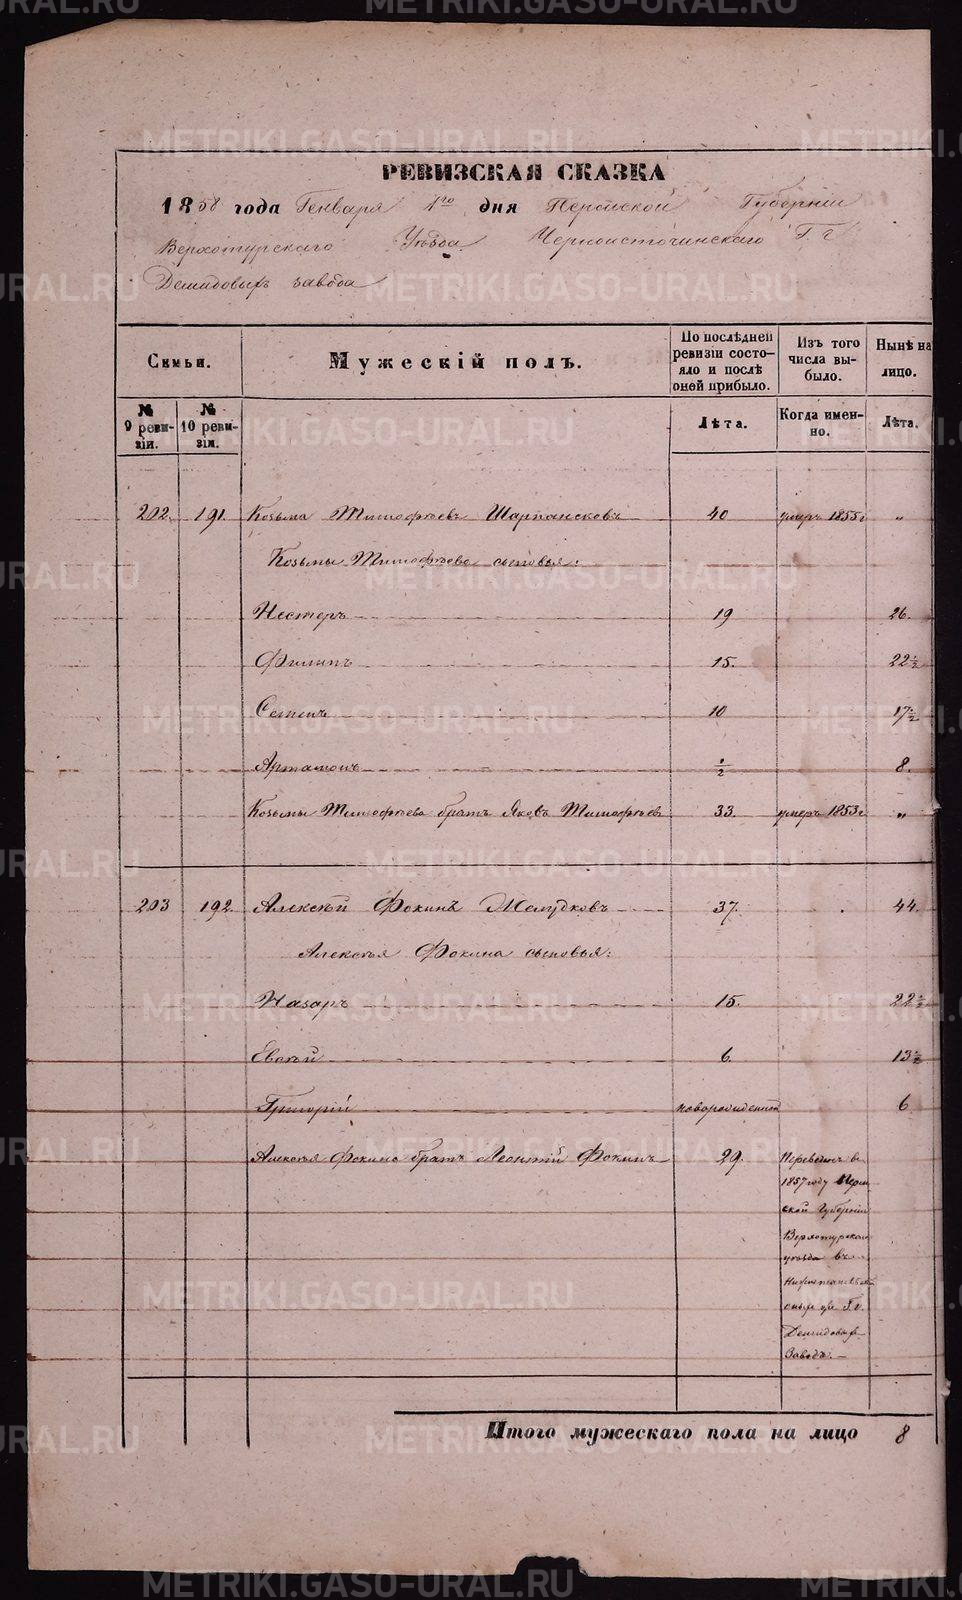 РЕВИЗСКАЯ СКАЗКА
1858 года Генваря 1го дня Пермской Губернии
Верхотурскаго Уѣзда Черноисточинскаго Г. г.
Демидовыхъ завода
Семьи.
Мужескій полъ.
По послѣдней ревизіи состояло и послѣ оней прибыло.
Изъ того числа выбыло.
Нынѣ на лицо.
№ 9 ревизіи.
№ 10 ревизіи.
Лѣта.
Когда именно.
Лѣта.
202. 191. Козьма Тимофѣевъ 40 умеръ 1855 г „
Козьмы Тимофѣева сыновья:
Нестеръ 19 26.
Филипъ 15. 22½
Семенъ 10 17½
Артамонъ ½ 8.
Козьмы Тимофѣева братъ Яковъ Тимофѣевъ 33. умеръ 1853 г „
203 192. Алексѣй Фокинъ 37. 44.
Алексѣя Фокина сыновья:
Назаръ 15. 22½
Евсѣй 6. 13½
Григорій новорожденный 6
Алексѣя Фокина братъ Леонтій Фокинъ 29. Переведенъ въ
1857 году Перм
ской Губерніи
Верхотурскаго
уѣзда въ
Нижнетагильскій
Г. г.
Демидовыхъ
Заводъ.
Итого мужескаго пола на лицо 8
METRIKI.GASO-URAL.RU